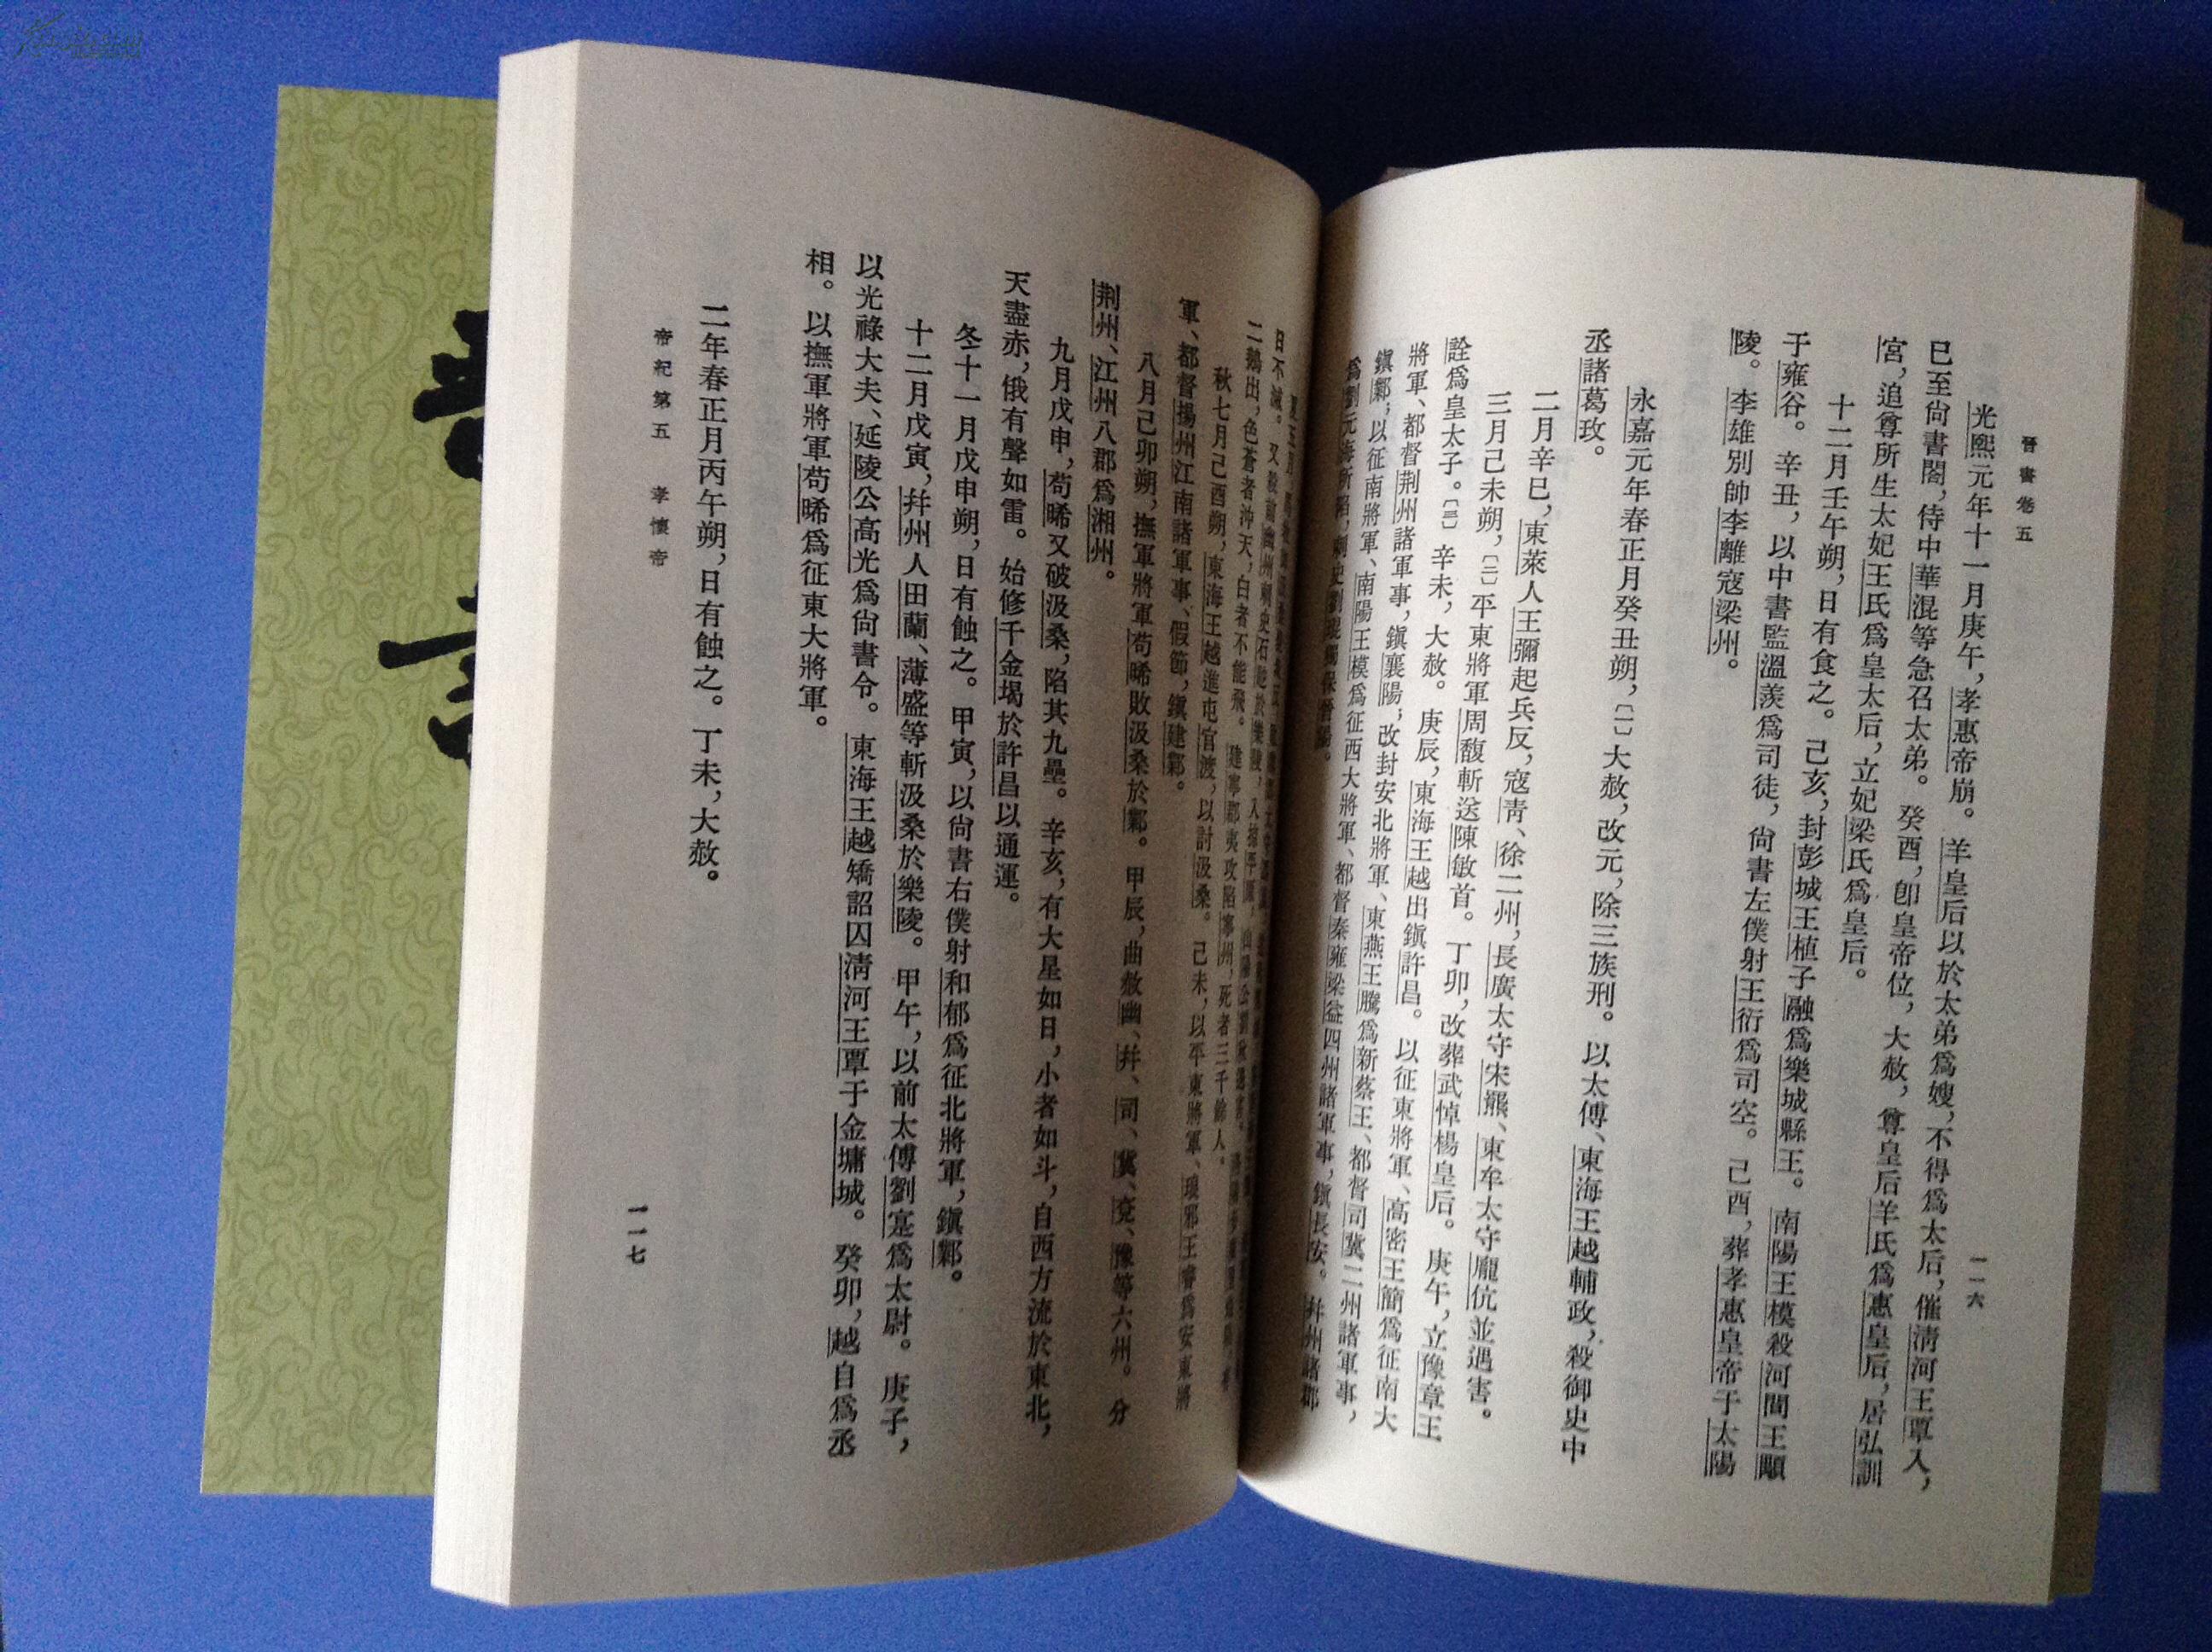 晉書卷五
一一六
光熙元年十一月庚午，孝惠帝崩。羊皇后以於太弟爲嫂，不得爲太后，催清河王覃入，
已至尙書閤，侍中華混等急召太弟。癸酉，卽皇帝位，大赦，尊皇后羊氏爲惠皇后，居弘訓
宮，追尊所生太妃王氏爲皇太后，立妃梁氏爲皇后。
十二月壬午朔，日有食之。己亥，封彭城王植子融爲樂城縣王。南陽王模殺河間王顒
于雍谷。辛丑，以中書監溫羨爲司徒，尙書左僕射王衍爲司空。己酉，葬孝惠皇帝于太陽
陵。李雄別帥李離寇梁州。
永嘉元年春正月癸丑朔，〔一〕大赦，改元，除三族刑。以太傅、東海王越輔政，殺御史中
丞諸葛玫。
二月辛巳，東萊人王彌起兵反，寇青、徐二州，長廣太守宋羆、東牟太守龐伉並遇害。
三月己未朔，〔二〕平東將軍周馥斬送陳敏首。丁卯，改葬武悼楊皇后。庚午，立豫章王
詮爲皇太子。〔三〕辛未，大赦。庚辰，東海王越出鎭許昌。以征東將軍、高密王簡爲征南大
將軍、都督荆州諸軍事，鎭襄陽；改封安北將軍、東燕王騰爲新蔡王、都督司冀二州諸軍事，
鎭鄴；以征南將軍、南陽王模爲征西大將軍、都督秦雍梁益四州諸軍事，鎭長安。幷州諸郡
爲劉元海所陷，刺史劉琨獨保晉陽。
日不滅。又殺前幽州刺史石尠於樂陵，入掠平原，山陽公劉秋遇害。
二鵝出，色蒼者沖天，白者不能飛。建寧郡夷攻陷寧州，死者三千餘人。
秋七月己酉朔，東海王越進屯官渡，以討汲桑。己未，以平東將軍、琅邪王睿爲安東將
軍、都督揚州江南諸軍事、假節，鎭建鄴。
八月己卯朔，撫軍將軍苟晞敗汲桑於鄴。甲辰，曲赦幽、幷、司、冀、兗、豫等六州。分
荆州、江州八郡爲湘州。
九月戊申，苟晞又破汲桑，陷其九壘。辛亥，有大星如日，小者如斗，自西方流於東北，
天盡赤，俄有聲如雷。始修千金堨於許昌以通運。
冬十一月戊申朔，日有蝕之。甲寅，以尙書右僕射和郁爲征北將軍，鎭鄴。
十二月戊寅，幷州人田蘭、薄盛等斬汲桑於樂陵。甲午，以前太傅劉寔爲太尉。庚子，
以光祿大夫、延陵公高光爲尙書令。東海王越矯詔囚清河王覃于金墉城。癸卯，越自爲丞
相。以撫軍將軍苟晞爲征東大將軍。
二年春正月丙午朔，日有蝕之。丁未，大赦。
帝紀第五　孝懷帝
一一七